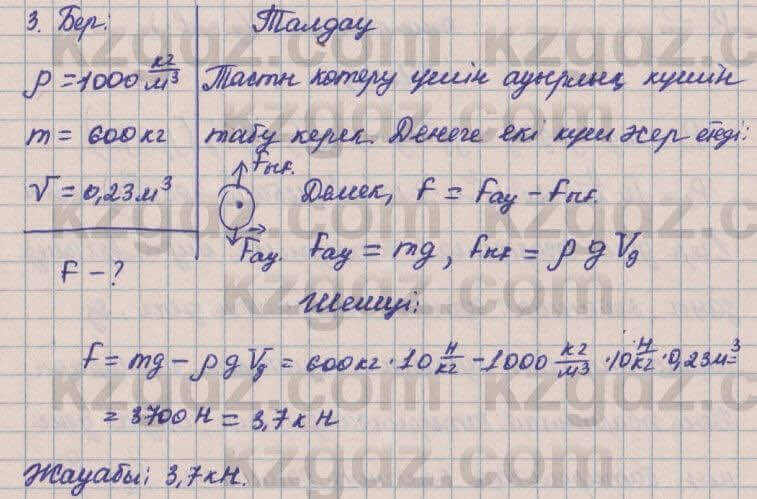 3. Бер:
Талдау
ρ = 1000 кг/м³
m = 600 кг
V = 0,23 м³
F - ?
Тасты көтеру үшін ауырлық күшін
табу керек. Денеге екі күш әсер етеді:
Fық.
Fау.
Демек, F = Fау - Fық.
Fау = mg, Fық = ρ g Vg
Шешуі:
F = mg - ρ g Vg = 600 кг · 10 Н/кг - 1000 кг/м³ · 10 Н/кг · 0,23 м³ =
= 3700 Н = 3,7 кН
Жауабы: 3,7 кН.
kzgdz.com